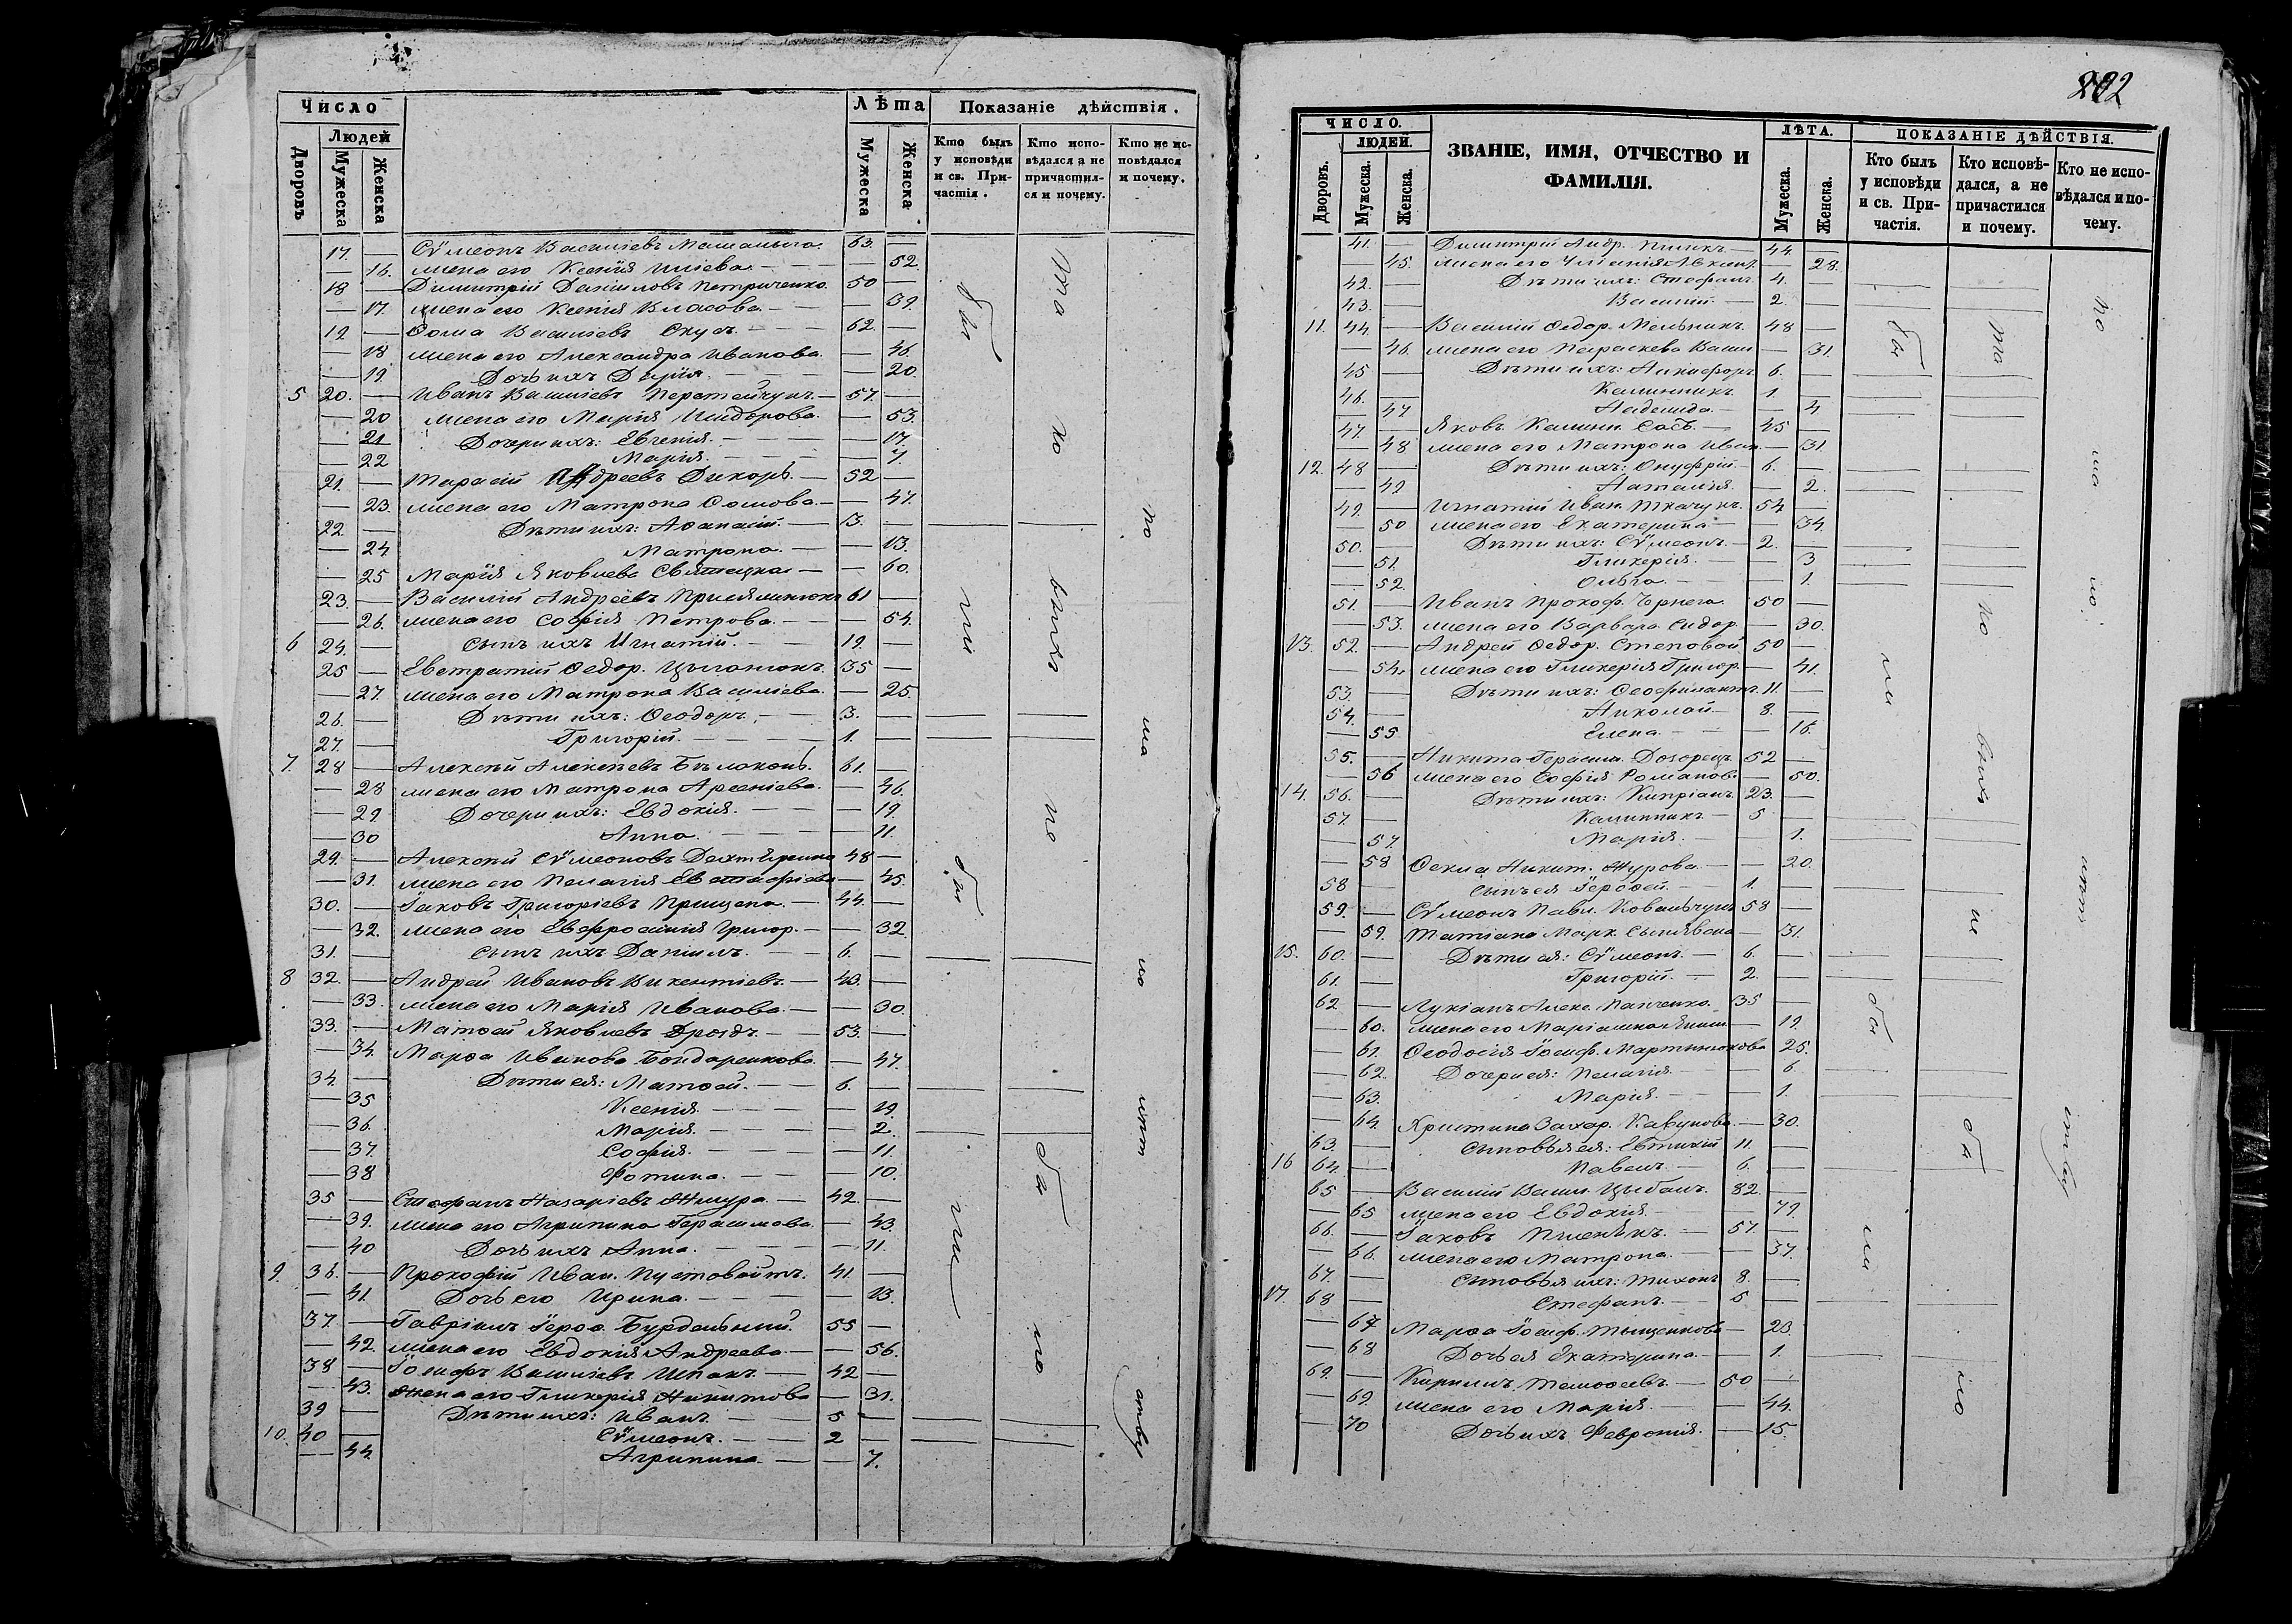 Число
Людей
Дворовъ
Мужеска
Женска
Лѣта
Мужеска
Женска
Показаніе дѣйствія.
Кто былъ у исповѣди и св. Причастія.
Кто исповѣдался а не причастился и почему.
Кто не исповѣдался и почему.
17. — Сѵмеонъ Василіевъ 63. —
— 16. жена его Ксенія Иліева — 52.
18 — Димитрій Даниловъ Петриченко 50 —
— 17. жена его Ксенія Власова — 39.
19 — Ѳома Василіевъ 62. —
— 18 жена его Александра Иванова — 46.
— 19. Дочь ихъ Дарія — 20
5 20. — Иванъ Василіевъ 57. —
— 20 жена его Марія — 53.
— 21 Дочери ихъ: Евгенія — 17.
— 22 Марія. — 7.
21. — Тарасій Андреевъ Дихоръ 52 —
— 23. жена его Матрона — 47.
22 — Дѣти ихъ: Аѳанасій 3. —
— 24. Матрона. — 13.
— 25 Марія Яковлева Святецкая — 60.
23. — Василій Андреевъ 61 —
— 26. жена его Софія Петрова. — 54.
6 24. — сынъ ихъ Игнатій. 19. —
25 — Евстратій Ѳедор. Цыганюкъ 35 —
— 27. жена его Матрона Василіева. — 25.
26. — Дѣти ихъ: Ѳеодоръ 3. —
27. — Григорій. 1. —
7. 28 — Алексѣй Алексѣевъ Бѣлоконь. 61. —
— 28 жена его Матрона Арсеніева. — 46.
— 29. Дочери ихъ: Евдокія. — 19.
— 30 Анна. — 11.
29. — Алексѣй Сѵмеоновъ 48 —
— 31. жена его Пелагія Евстафіева — 45.
30. — Іаковъ Григоріевъ Прищепа. 44. —
— 32. жена его Евфросинія Григор. — 32.
31. — сынъ ихъ Даніилъ. 6. —
8 32. — Андрей Ивановъ Викентіевъ 43. —
— 33. жена его Марія Иванова. — 30.
33. — Матѳей Яковлевъ Дроздъ 53. —
— 34. Марѳа Иванова Бондаренкова — 47.
34. — Дѣти ея: Матѳей. 6. —
— 35 Ксенія. — 19.
— 36. Марія. — 2.
— 37. Софія. — 11.
— 38 Фотина. — 10.
35 — Стефанъ Назаріевъ 42. —
— 39. жена его Агрипина Герасимова. — 43.
— 40 Дочь ихъ Анна. — 11.
9. 36. — Прокофій Иван. Пустовойтъ. 41. —
— 41 Дочь его Ирина. — 13.
37. — Гавріилъ Іероѳ. Бурдейный. 55 —
— 42. жена его Евдокія Андреева. — 56.
38 — Іосифъ Василіевъ Шпакъ. 42 —
— 43. Жена его Гликерія Никитова — 31.
39 — Дѣти ихъ: Иванъ. 5 —
10. 40 — Сѵмеонъ. 2 —
— 44. Агрипина — 7.
бы
ли
бы
ли
202
ЧИСЛО.
ЛЮДЕЙ.
Дворовъ.
Мужеска.
Женска.
ЗВАНІЕ, ИМЯ, ОТЧЕСТВО И ФАМИЛІЯ.
ЛѢТА.
Мужеска.
Женска.
ПОКАЗАНІЕ ДѢЙСТВІЯ.
Кто былъ у исповѣди и св. Причастія.
Кто исповѣдался, а не причастился и почему.
Кто не исповѣдался и почему.
41. — Димитрій Андр. 44. —
— 45. жена его — 28.
42. — Дѣти ихъ: Стефанъ 4. —
43. — Василій. 2. —
11. 44. — Василій Ѳедор. Мельникъ 48 —
— 46. жена его Параскева Васил. — 31.
45 — Дѣти ихъ: Никифоръ 6. —
46. — Калинникъ. 1. —
— 47 Надежда. — 4
47. — Яковъ Калин. Сась. 45 —
— 48 жена его Матрона Иван. — 31.
12. 48 — Дѣти ихъ: Онуфрій. 6. —
— 49 Наталія. — 2.
49. — Игнатій Иван. Ткачукъ. 54 —
— 50 жена его Екатерина — 34.
50. — Дѣти ихъ: Сѵмеонъ. 2. —
— 51. Гликерія. — 3
— 52. Ольга. — 1.
51. — Иванъ Прокоф. Чернега. 50 —
— 53. жена его Варвара Сидор. — 30.
13. 52. — Андрей Ѳедор. Степовой 50 —
— 54. жена его Гликерія Григор. — 41.
53. — Дѣти ихъ: Ѳеофилактъ 11. —
54. — Николай. 8. —
— 55 Елена. — 16.
55. — Никита Герасим. Дозорецъ 52 —
— 56 жена его Софія Романов. — 50.
14. 56. — Дѣти ихъ: Кипріанъ 23. —
57. — Калинникъ 5 —
— 57. Марія. 1.
— 58 Ѳекла Никит. Журова. — 20.
58 — сынъ ея Іероѳей. 1. —
59. — Сѵмеонъ Павл. Ковальчукъ 58 —
— 59. Татіана Марк. — 31.
15. 60. — Дѣти ея: Сѵмеонъ. 6. —
61. — Григорій. 2. —
62 — Лукіанъ Алекс. Панченко. 35 —
— 60. жена его — 19.
— 61. Ѳеодосія Іосиф. Мартинюкова 25.
— 62. Дочери ея: Пелагія. — 6.
— 63. Марія. — 1.
— 64. Христина Захар. Кавунова. — 30.
63. — сыновья ея: Евтихій 11. —
16 64. — Павелъ. 6. —
65 — Василій Васил. Цыбань. 82. —
— 65 жена его Евдокія. — 79.
66. — Іаковъ 57. —
— 66. жена его Матрона. — 37.
67. — сыновья ихъ: Тихонъ 8. —
17. 68 — Стефанъ. 5 —
— 67 Марѳа Іосиф. Тыщенкова — 23.
— 68 Дочь ея Екатерина. — 1.
69. — Кириллъ Тимоѳеевъ. 50 —
— 69. жена его Марія. — 44.
— 70 Дочь ихъ Февронія. — 15.
бы
ли
бы
ли